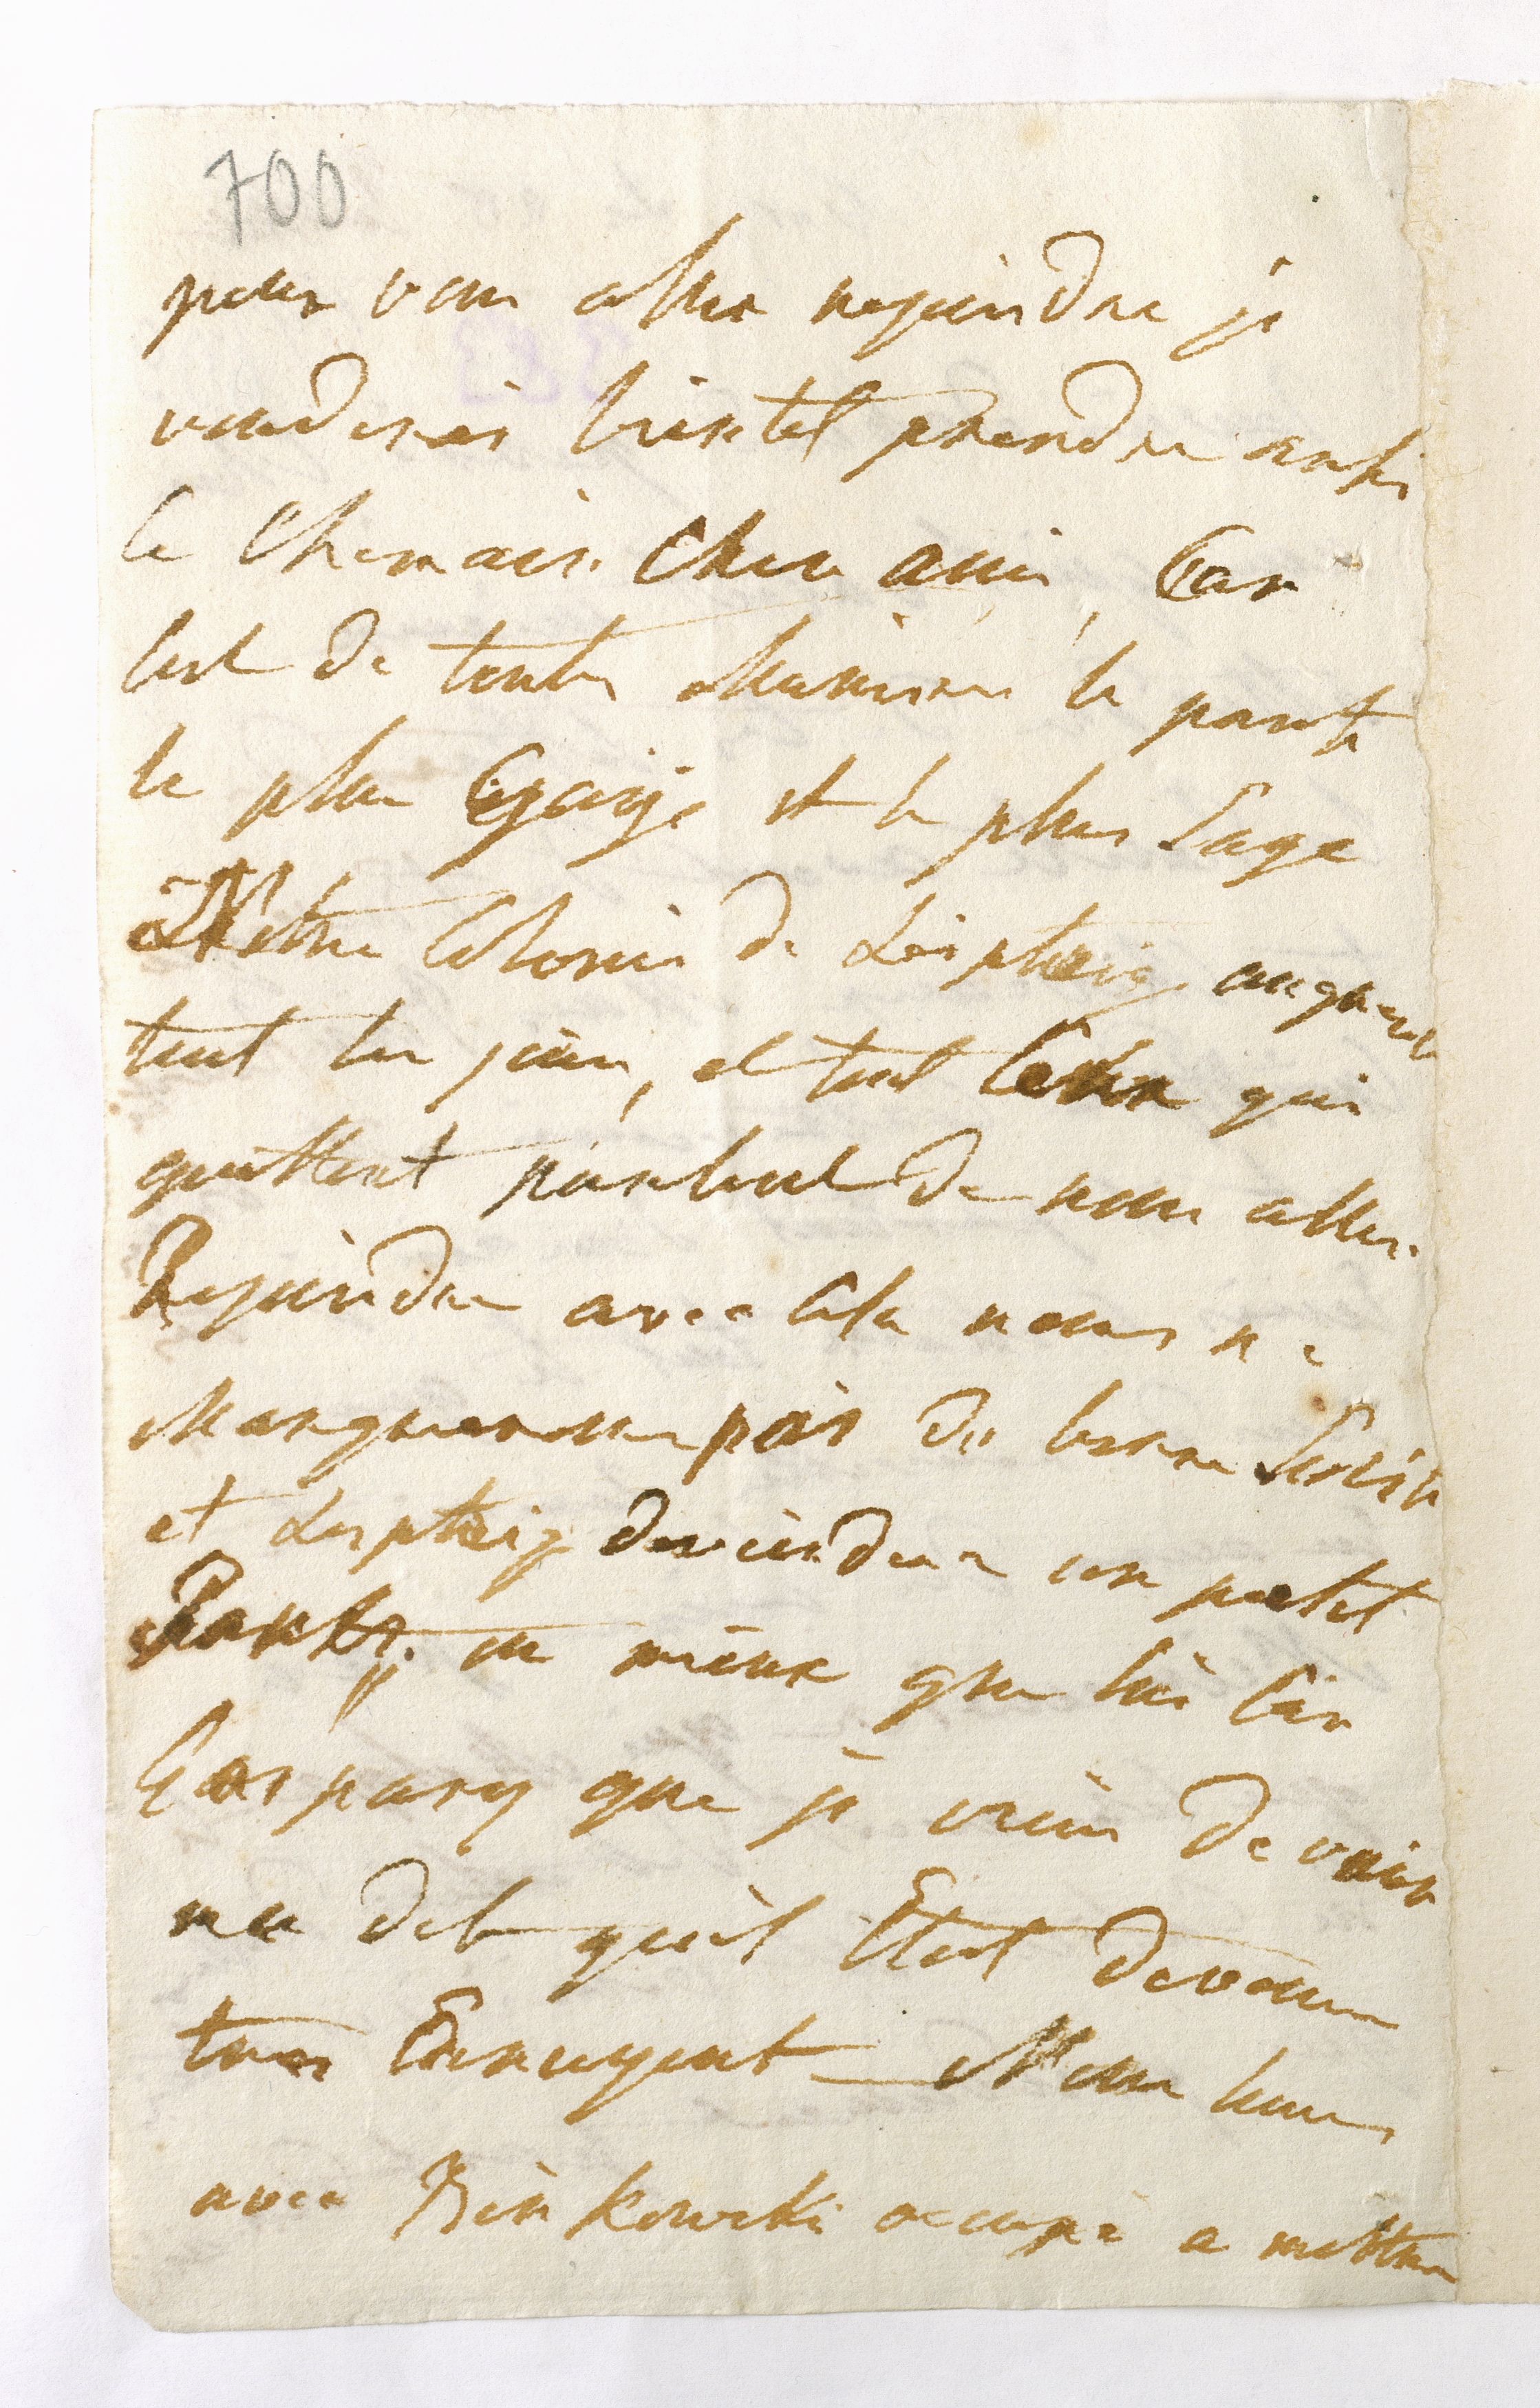 700
pour vous aller rejoindre je
vouderai bientot prendre ausi
le Chemain Cher ami, Car
lest de toutes Manieres le parti
le plus et le plus Sage
Notre Colonie de Leiptzig augmente
tout les jours, et tout Ceux qui
quittent parlent de nous aller
Rejoindre avec Cela nous ne
Manquerons pas de bonne Societe
et Leiptzig deviendra un petit
ou mieux que lui Car
Gaspary que je vien de voir
ma dit quil Etait devenu
tres Ennuyent — Nous somes
avec Binkowski occupé a mettre